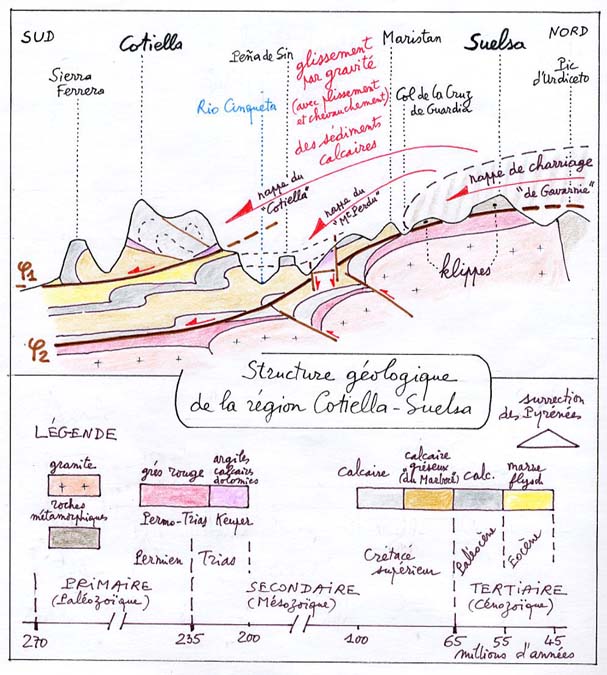 SUD
Cotiella
Peña de Sin
glissement
par gravité
(avec plissement
et chevauchement)
des sédiments
calcaires
Maristan
Suelsa
NORD
Sierra
Ferrera
Rio Cinqueta
Col de la Cruz
de Guardia
Pic
d'Urdiceto
nappe du
"Cotiella"
nappe du
"Mt Perdu"
nappe de charriage
"de Gavarnie"
klippes
φ1
φ2
Structure géologique
de la région Cotiella-Suelsa
LÉGENDE
granite
roches
métamorphiques
grés rouge
argiles
calcairs
dolomies
Permo-Trias
Keuper
Permien
Trias
calcaire
calcaire
gréseux
(du Marboré)
calc.
marse
flysch
surrection
des Pyrénées
Crétacé
supérieur
Paléocène
Eocène
PRIMAIRE
(Paléozoïque)
SECONDAIRE
(Mésozoïque)
TERTIAIRE
(Cénozoïque)
270
235
200
100
65
55
45
millions d'années